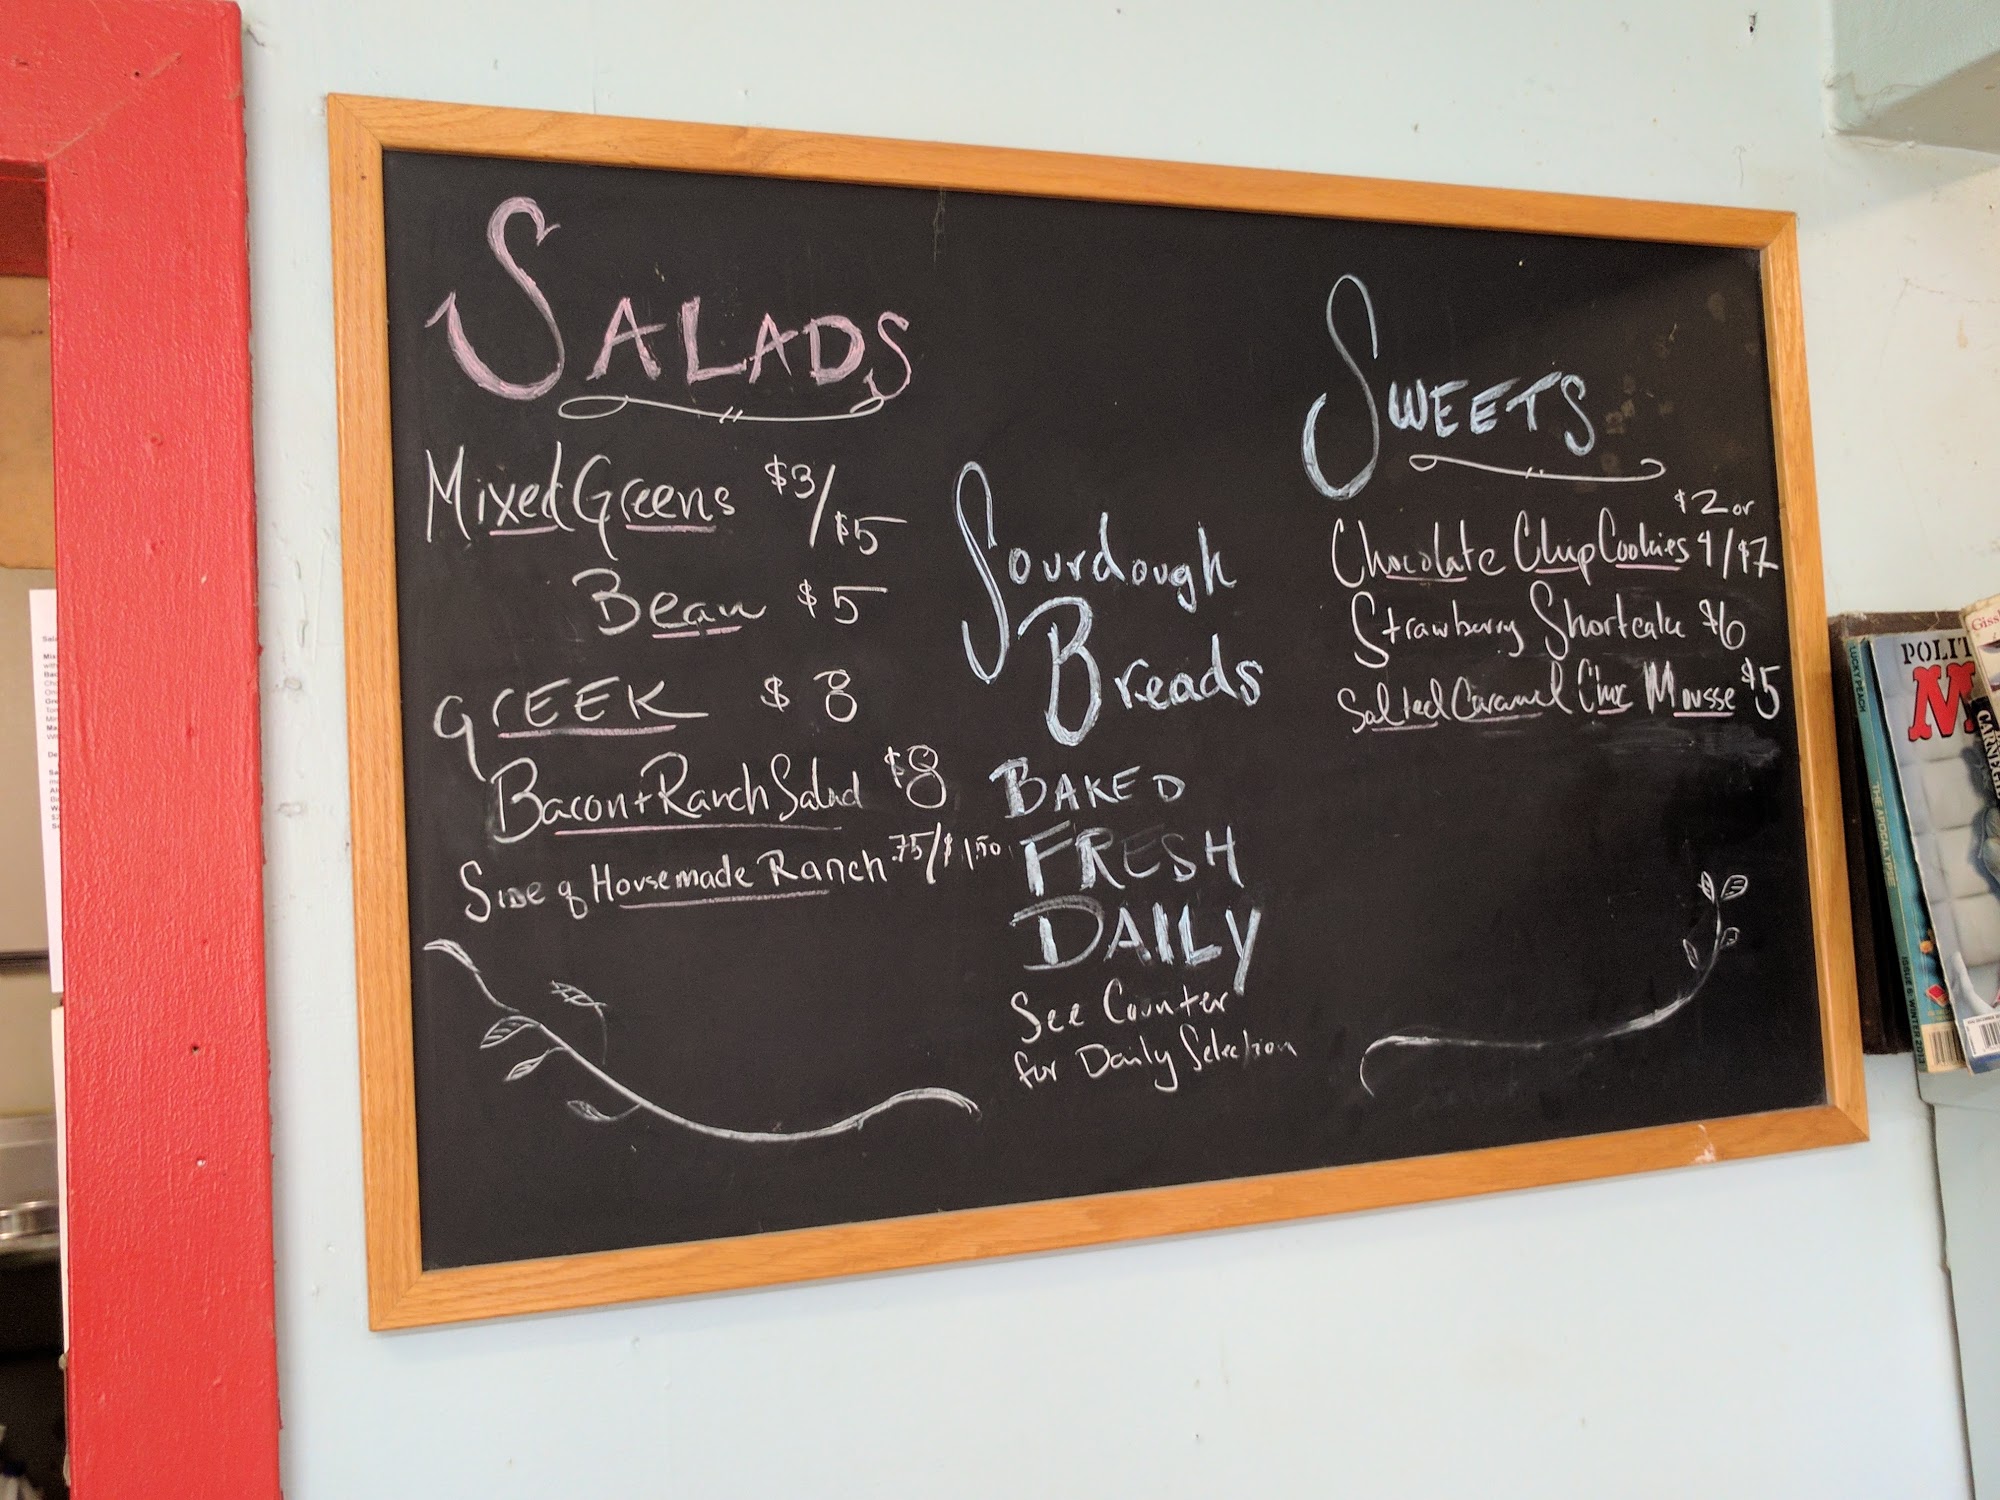 SALADS
Mixed Greens $3/$5
Bean $5
GREEK $8
Bacon + Ranch Salad $8
Side of Housemade Ranch .75/$1.50
Sourdough
Breads
BAKED
FRESH
DAILY
See Counter
for Daily Selection
SWEETS
$2 or
Chocolate Chip Cookies 4/$7
Strawberry Shortcake $6
Salted Caramel Choc Mousse $5
LUCKY PEACH
THE APOCALYPSE
ISSUE 6: WINTER 2013
POLIT
M
CARNEGIE
Giss